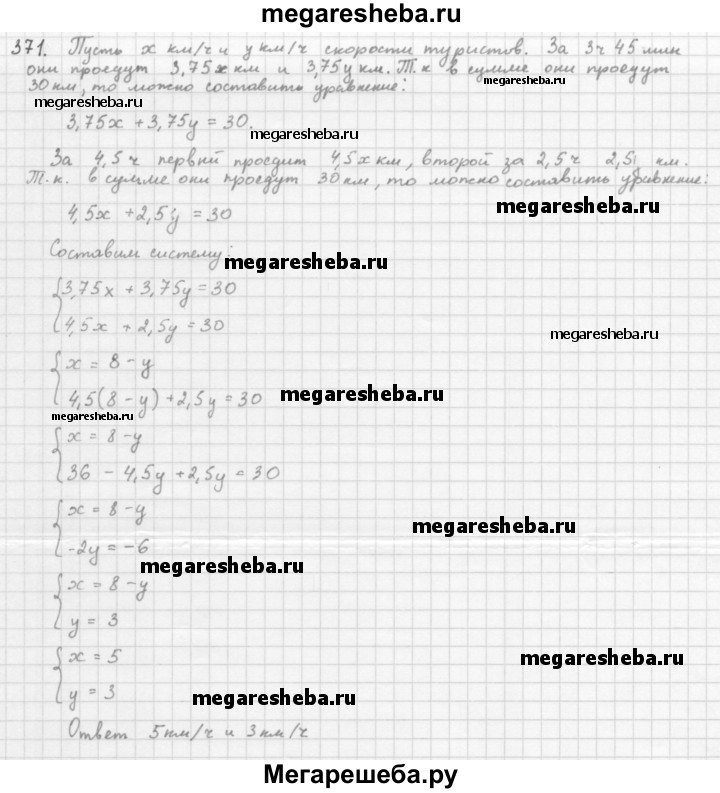 megaresheba.ru
371. Пусть x км/ч и y км/ч скорости туристов. За 3ч 45 мин
они проедут 3,75x км и 3,75y км. Т.к в сумме они проедут
megaresheba.ru
30 км, то можно составить уравнение:
megaresheba.ru
3,75x + 3,75y = 30.
megaresheba.ru
За 4,5 ч первый проедит 4,5x км, второй за 2,5ч 2,5 км.
Т.к. в сумме они проедут 30 км, то можно составить уравнение:
megaresheba.ru
4,5x + 2,5y = 30
Составим систему:
megaresheba.ru
3,75x + 3,75y = 30
4,5x + 2,5y = 30
megaresheba.ru
x = 8 - y
4,5(8 - y) + 2,5y = 30
megaresheba.ru
megaresheba.ru
x = 8 - y
36 - 4,5y + 2,5y = 30
x = 8 - y
megaresheba.ru
-2y = -6
megaresheba.ru
x = 8 - y
y = 3
x = 5
megaresheba.ru
y = 3
megaresheba.ru
Ответ 5 км/ч и 3 км/ч
Мегарешеба.ру